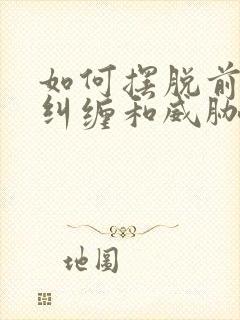 如何摆脱前
纠缠和威胁
地图